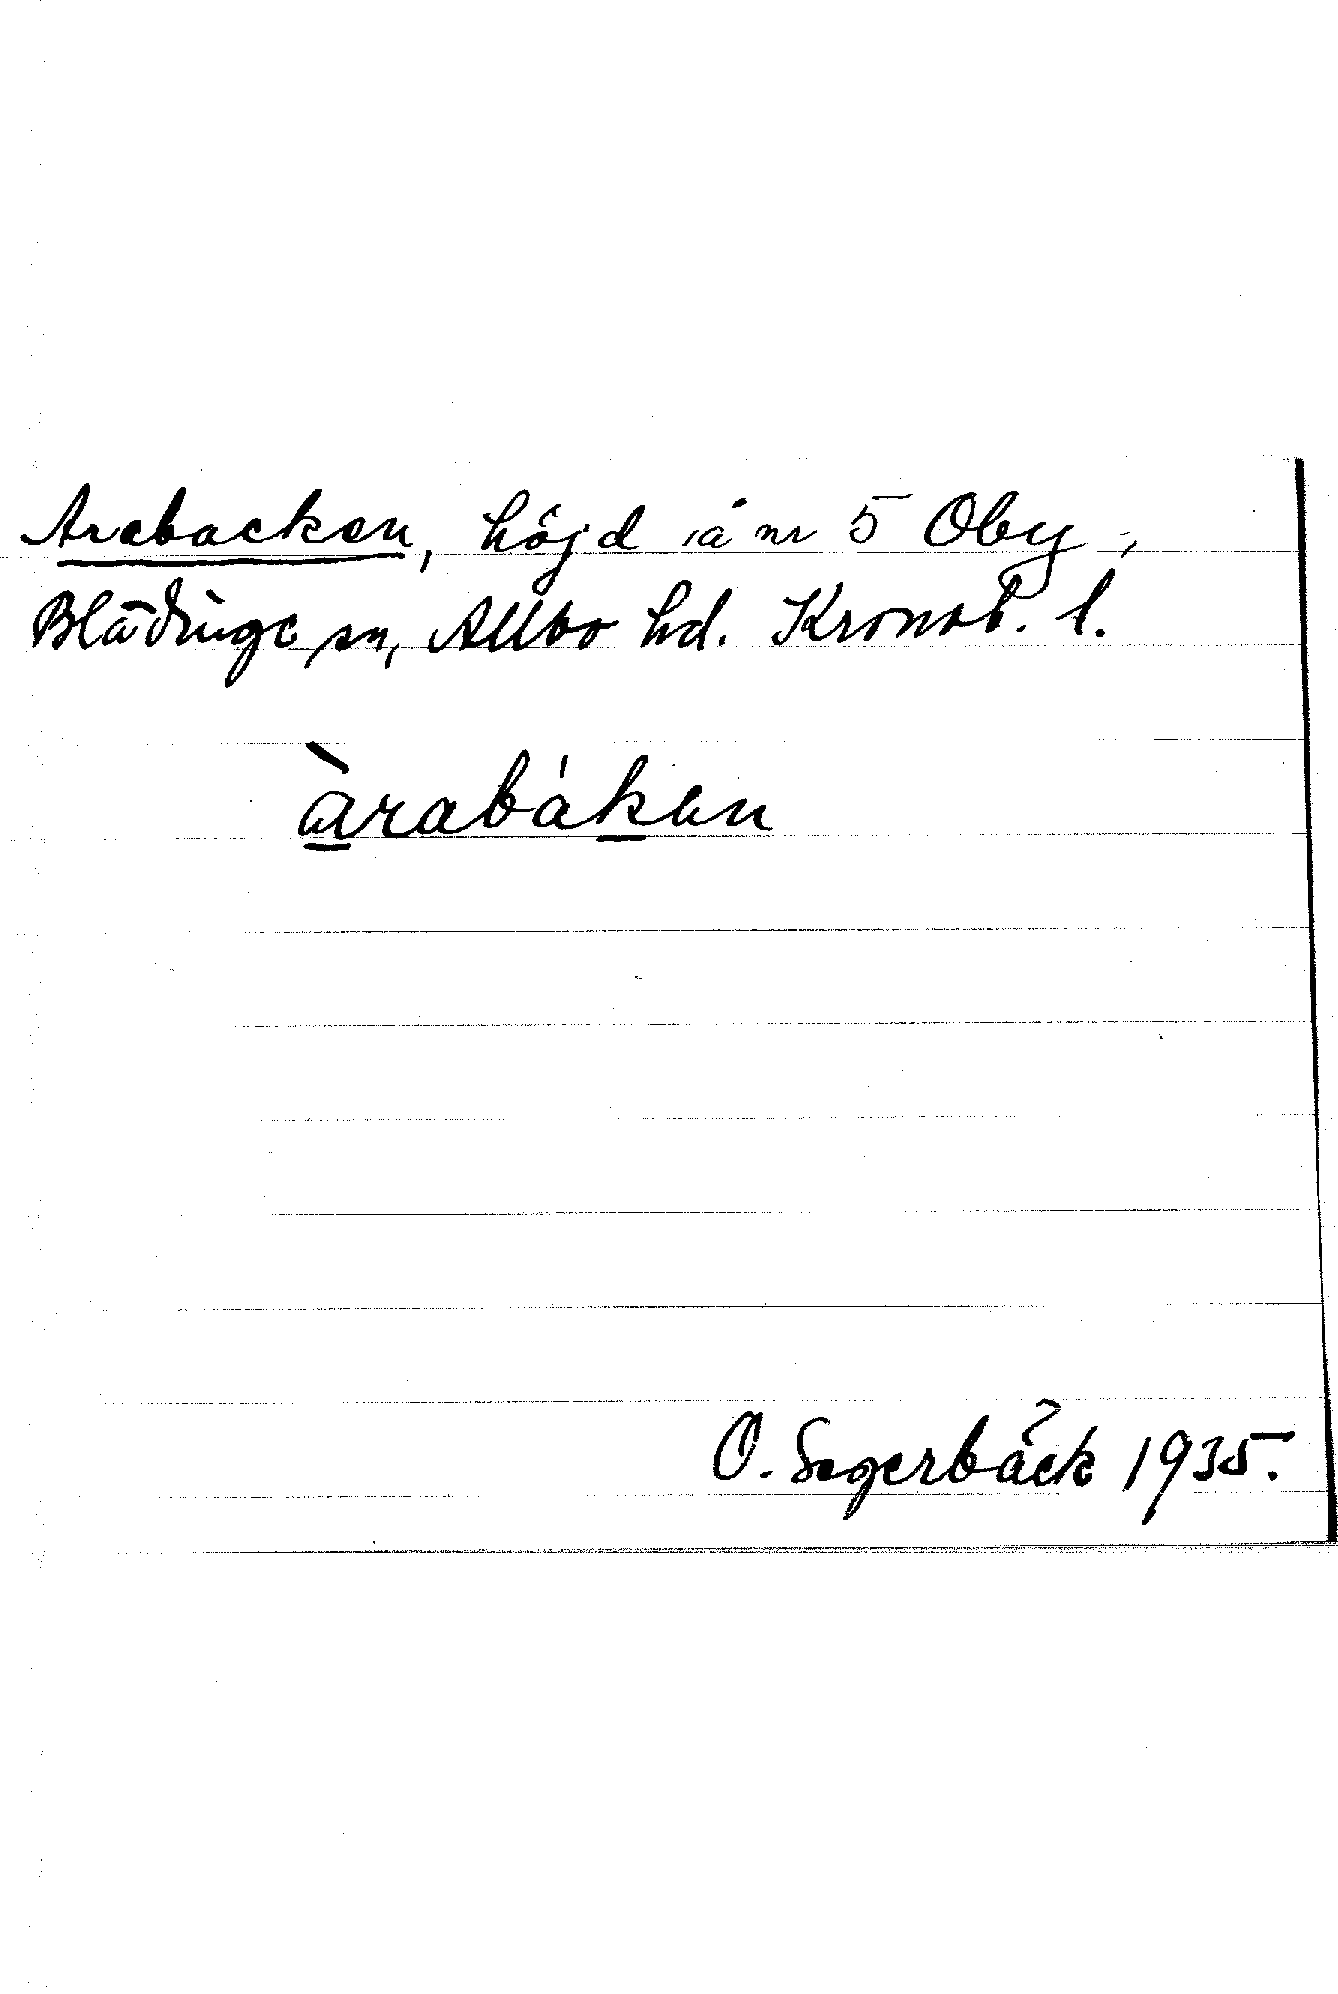 Arebacken, höjd å nr 5 Oby,
Blädinge sn, Allbo hd. Kronob. l.
àrabáken
O. Segerbäck 1935.